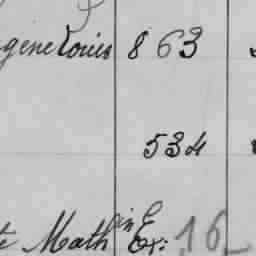 gene Louis 863
534
te Math in Ex: 16